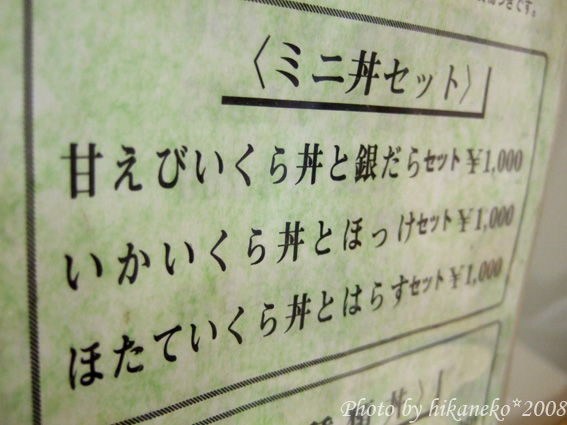 つきです。
〈ミニ丼セット〉
甘えびいくら丼と銀だらセット ¥1,000
いかいくら丼とほっけセット ¥1,000
ほたていくら丼とはらすセット ¥1,000
丼〉
Photo by hikaneko*2008